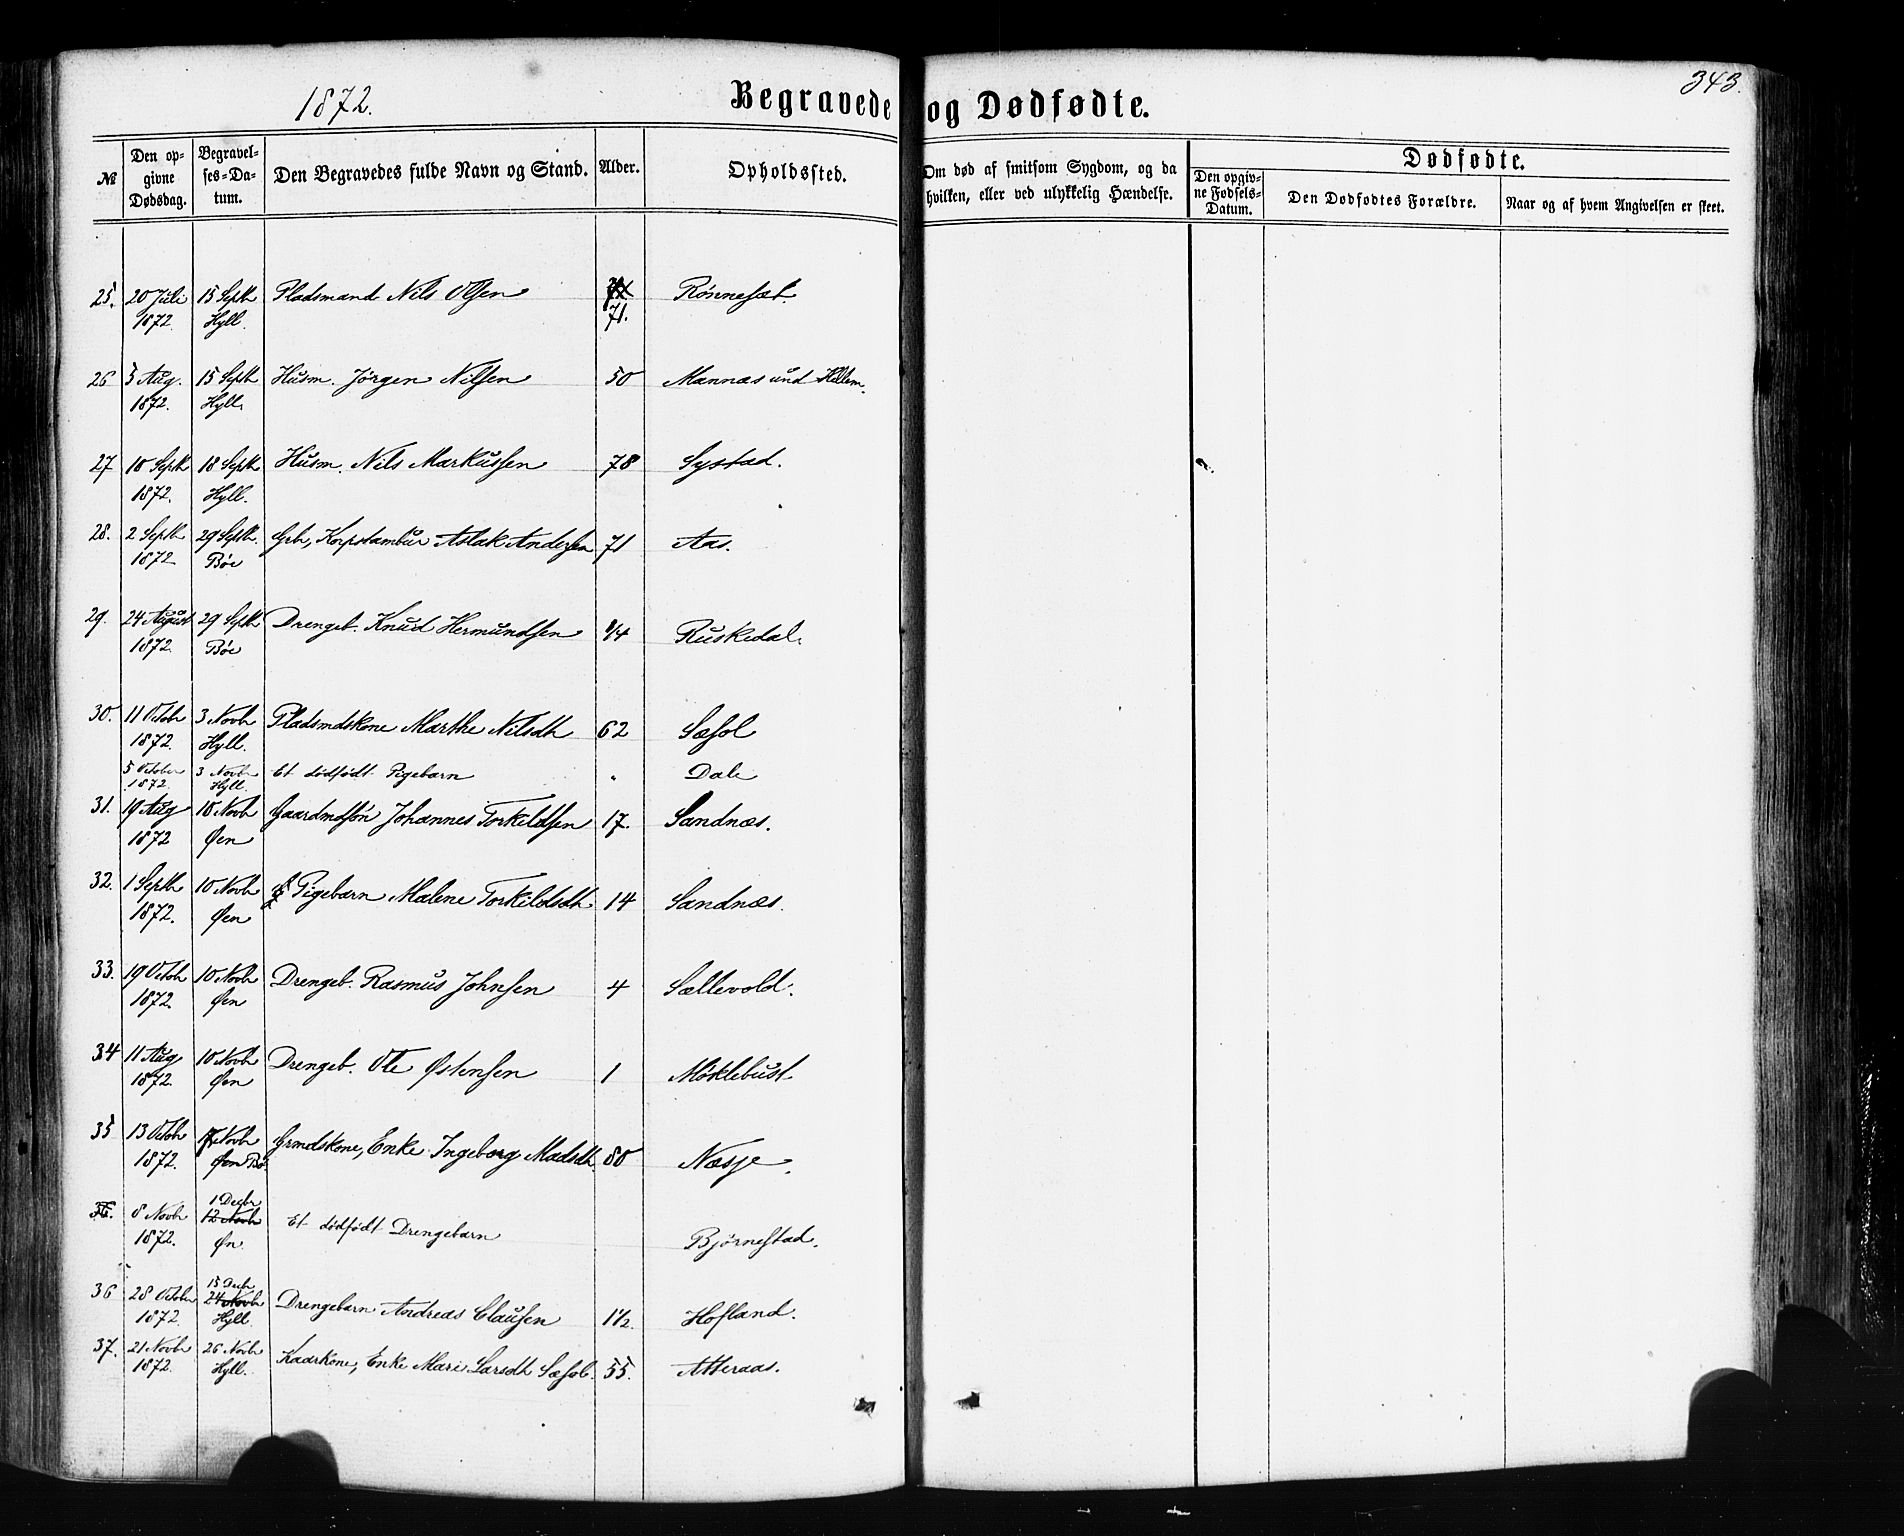 1872.
Begravede og Dødfødte.
343.
№
Den opgivne Dødsdag.
Begravelses-Datum.
Den Begravedes fulde Navn og Stand.
Alder.
Opholdssted.
Om død af smitsom Sygdom, og da hvilken, eller ved ulykkelig Hændelse.
Dødfødte.
Den opgivne Fødsels-Datum.
Den Dødfødtes Forældre.
Naar og af hvem Angivelsen er skeet.
25. 20 Juli 15 Septb Pladsmand Nils Olsen Rönnesæt.
1872. Hyll. 71.
26 5 Aug. 15 Septb Husm. Jörgen Nilsen 50 Mannæs und Hillem.
1872. Hyll.
27 10 Septb 18 Septb Husm. Nils Markussen 78 Systad.
1872. Hyll.
28. 2 Septb 29 Septb. Korpstambur Aslak Andersen 71 Aas.
1872 Böe
29. 24 August 29 Septb Drengeb. Knud Hermundsen 1/4 Ruskedal.
1872. Böe
30. 11 Octobr 3 Novbr Pladsmdskone Marthe Nilsdtr 62 Sæsol
1872. Hyll.
5 October 3 Novbr Et dödfödt Pigebarn " Dale
1872. Hyll.
31. 19 Aug 10 Novbr Gaardmdsön Johannes Torkildsen 17. Sandnæs.
1872 Øen
32. 1 Septbr 10 Novbr Pigebarn Malene Torkildsdtr 14 Sandnæs.
1872. Øen
33. 19 Octobr 10 Novbr Drengeb. Rasmus Johnsen 4 Sællevold.
1872. Øen
34 11 Aug 10 Novbr Drengeb. Ole Østensen 1 Möklebust
1872. Øen
35 13 Octobr Novbr Grmdskone, Enke Ingeborg Madsdtr. 80 Næsje.
1872. Øen Bö
1 Decbr
36. 8 Novbr 12 Novbr Et dödfödt Drengebarn Björnestad.
1872. Øn
15 Decbr
36 28 October 24 Novbr Drengebarn Andreas Clausen 1 1/2. Hofland.
1872. Hyll.
37. 21 Novbr 26 Novbr Kaarkone, Enke Mari Larsdtr Sæsol. 55. Atteraas.
1872. Hyll.